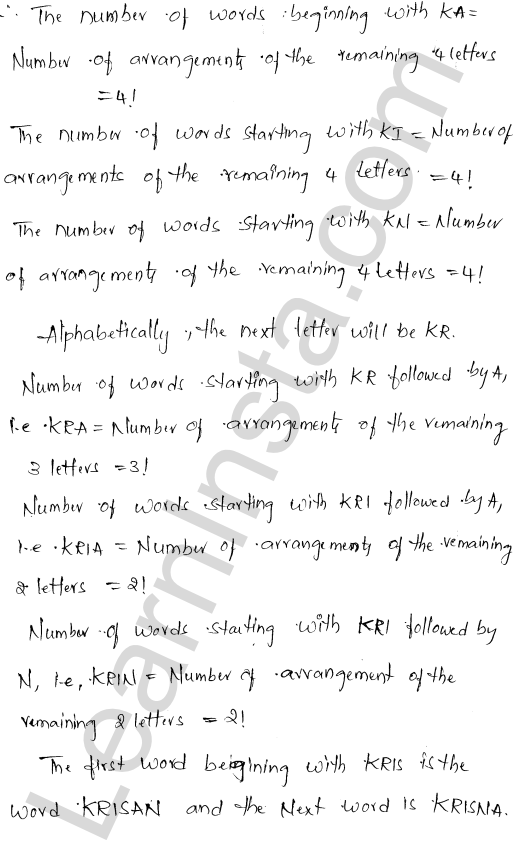 ∴ The number of words beginning with KA =
Number of arrangements of the remaining 4 letters
= 4!
The number of words starting with KI = Number of
arrangements of the remaining 4 letters = 4!
The number of words starting with KN = Number
of arrangements of the remaining 4 letters = 4!
Alphabetically, the next letter will be KR.
Number of words starting with KR followed by A,
i.e KRA = Number of arrangements of the remaining
3 letters = 3!
Number of words starting with KRI followed by A,
i.e KRIA = Number of arrangements of the remaining
2 letters = 2!
Number of words starting with KRI followed by
N, i.e, KRIN = Number of arrangement of the
remaining 2 letters = 2!
The first word beigining with KRIS is the
word KRISAN and the Next word is KRISNA.
LearnInsta.com